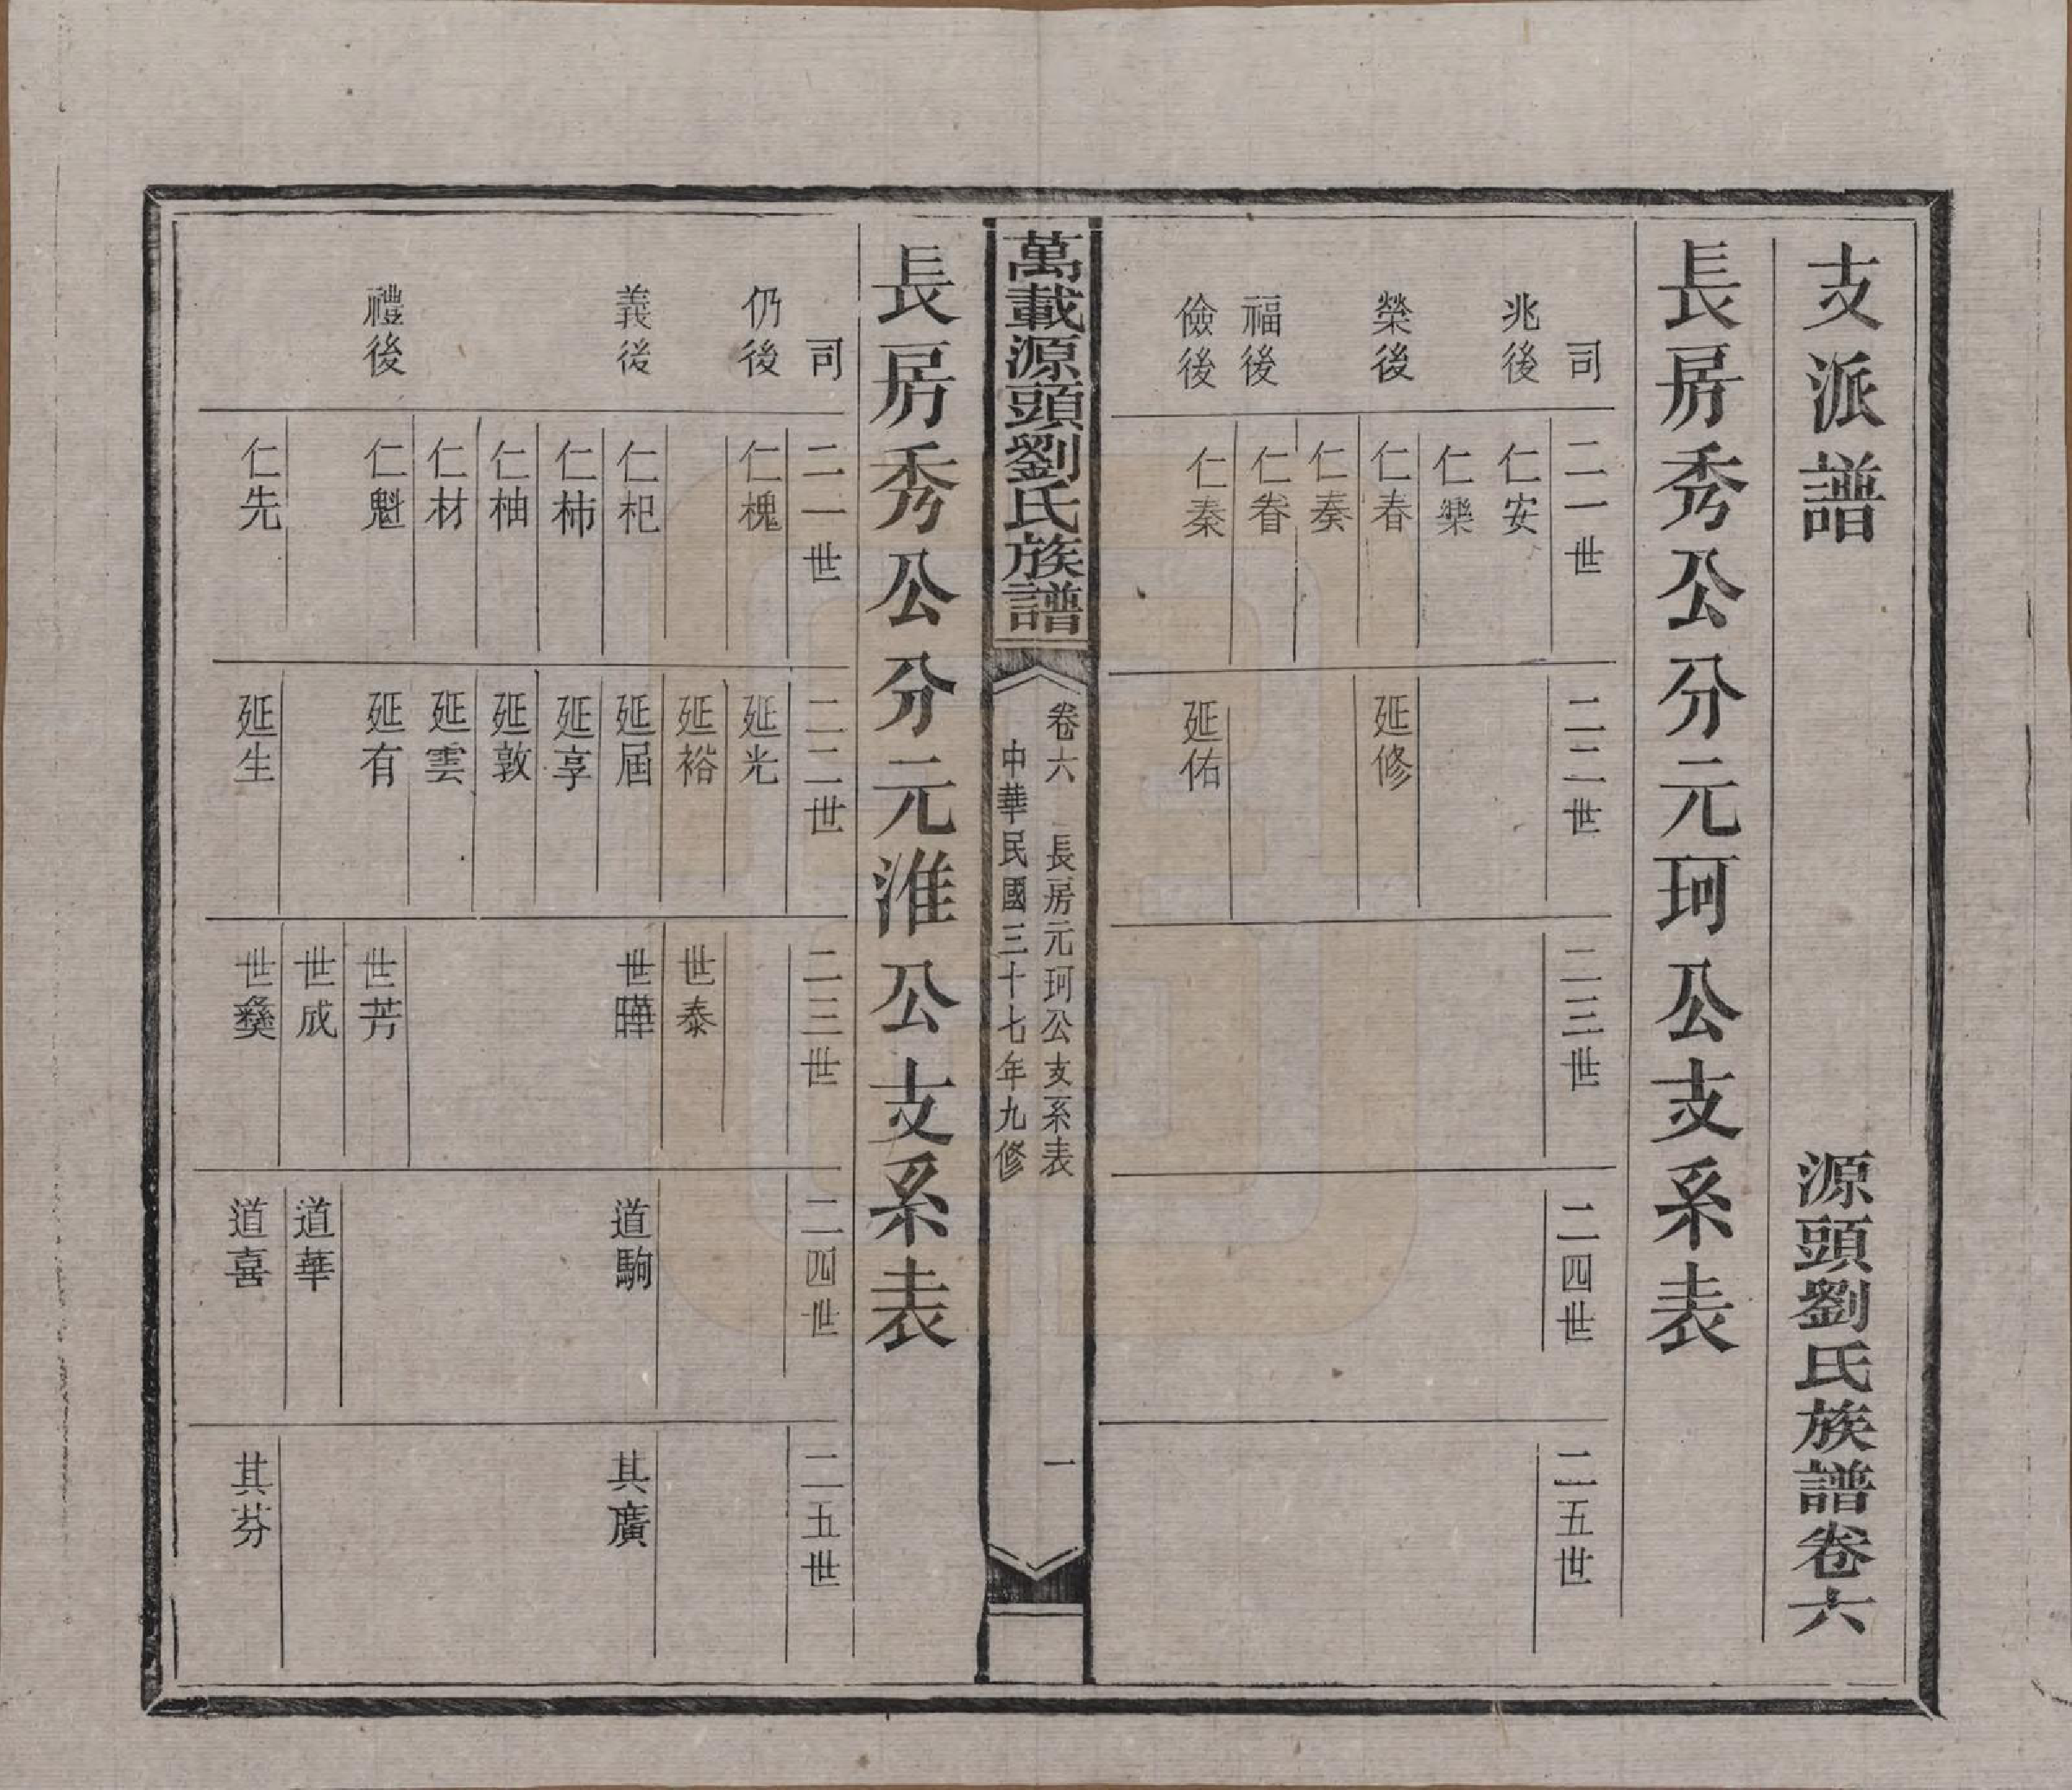 支派譜
源頭劉氏族譜卷六
長房秀公分元珂公支系表
司
二一世
二二世
二三世
二四世
二五世
兆後
仁安
仁樂
榮後
仁春
延修
仁奏
福後
仁眷
儉後
仁秦
延佑
萬載源頭劉氏族譜
卷六
長房元珂公支系表
一
中華民國三十七年九修
長房秀公分元淮公支系表
司
二一世
二二世
二三世
二四世
二五世
仍後
仁槐
延光
延裕
世泰
義後
仁杞
延屆
世曄
道駒
其廣
仁柿
延享
仁柚
延敦
仁材
延雲
禮後
仁魁
延有
世芳
世成
道華
仁先
延生
世彝
道喜
其芬